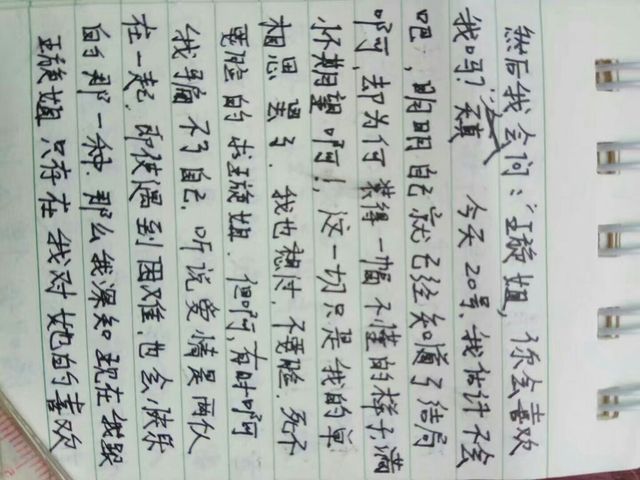 然后我会问：“璇姐，你会喜欢
我吗？” 天真 今天20号，我估计不会
吧，明明自己就已经知道了结局
啊，却为何装得一幅不懂的样子，满
怀期望啊！，这一切只是我的单
相思罢了。我也想过，不要脸，死不
要脸的求璇姐。但啊，有时啊
我骗不了自己，听说爱情是两人
在一起，即使遇到困难，也会快乐
的那一种，那么我深知现在我跟
璇姐只存在我对她的喜欢